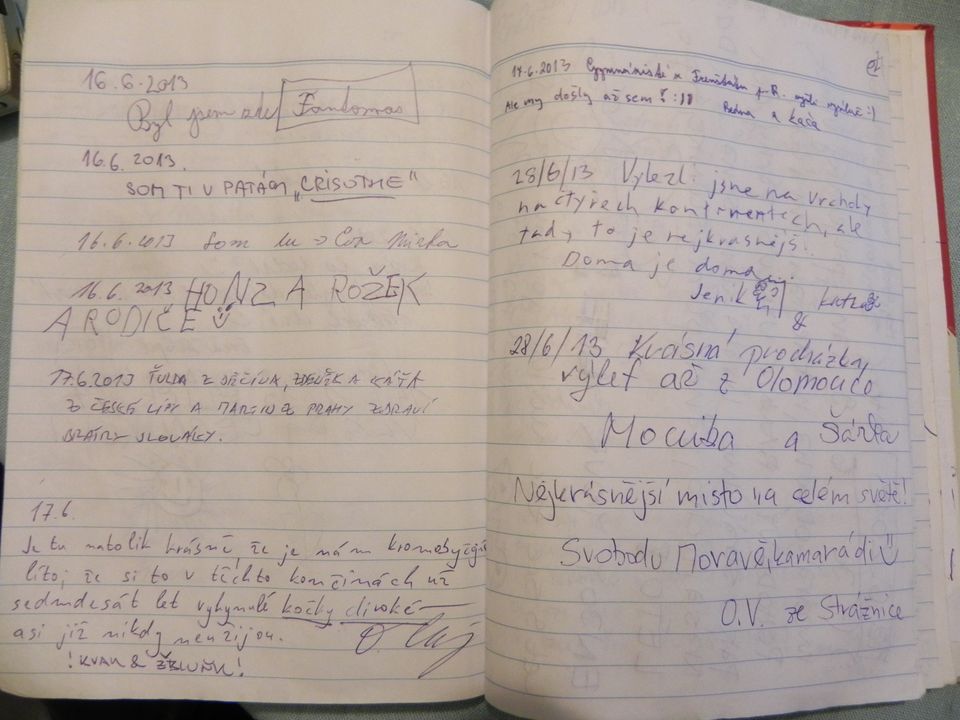 16.6.2013
Byl jsem zde Fantomas
16.6.2013.
SOM TI V PÄTÁCH „CRISOTME"
16.6.2013 Som tu
16.6.2013 HONZA ROŽEK
A RODIČE
17.6.2013 Z DĚČÍNA, ZDENĚK A KÁŤA
Z ČESKÉ LÍPY A MARTIN Z PRAHY ZDRAVÍ
BRATRY SLOVÁKY.
17.6.
Je tu natolik krásně že je nám
líto, že si to v těchto končinách už
sedmdesát let vyhynulé kočky divoké
asi již nikdy neužijou.
! KVAK & ŽBLUŇK !
17.6.2013
Ale my došly až sem ! :)) a Káča
28/6/13 Vylezli jsme na vrcholy
na čtyřech kontinentech, ale
tady to je nejkrásnější.
Doma je doma
Jeník
&
28/6/13 Krásná procházka,
výlet až z Olomouce
a Šárka
Nejkrásnější místo na celém světě!
Svobodu Moravě, kamarádi
O.V. ze Strážnice